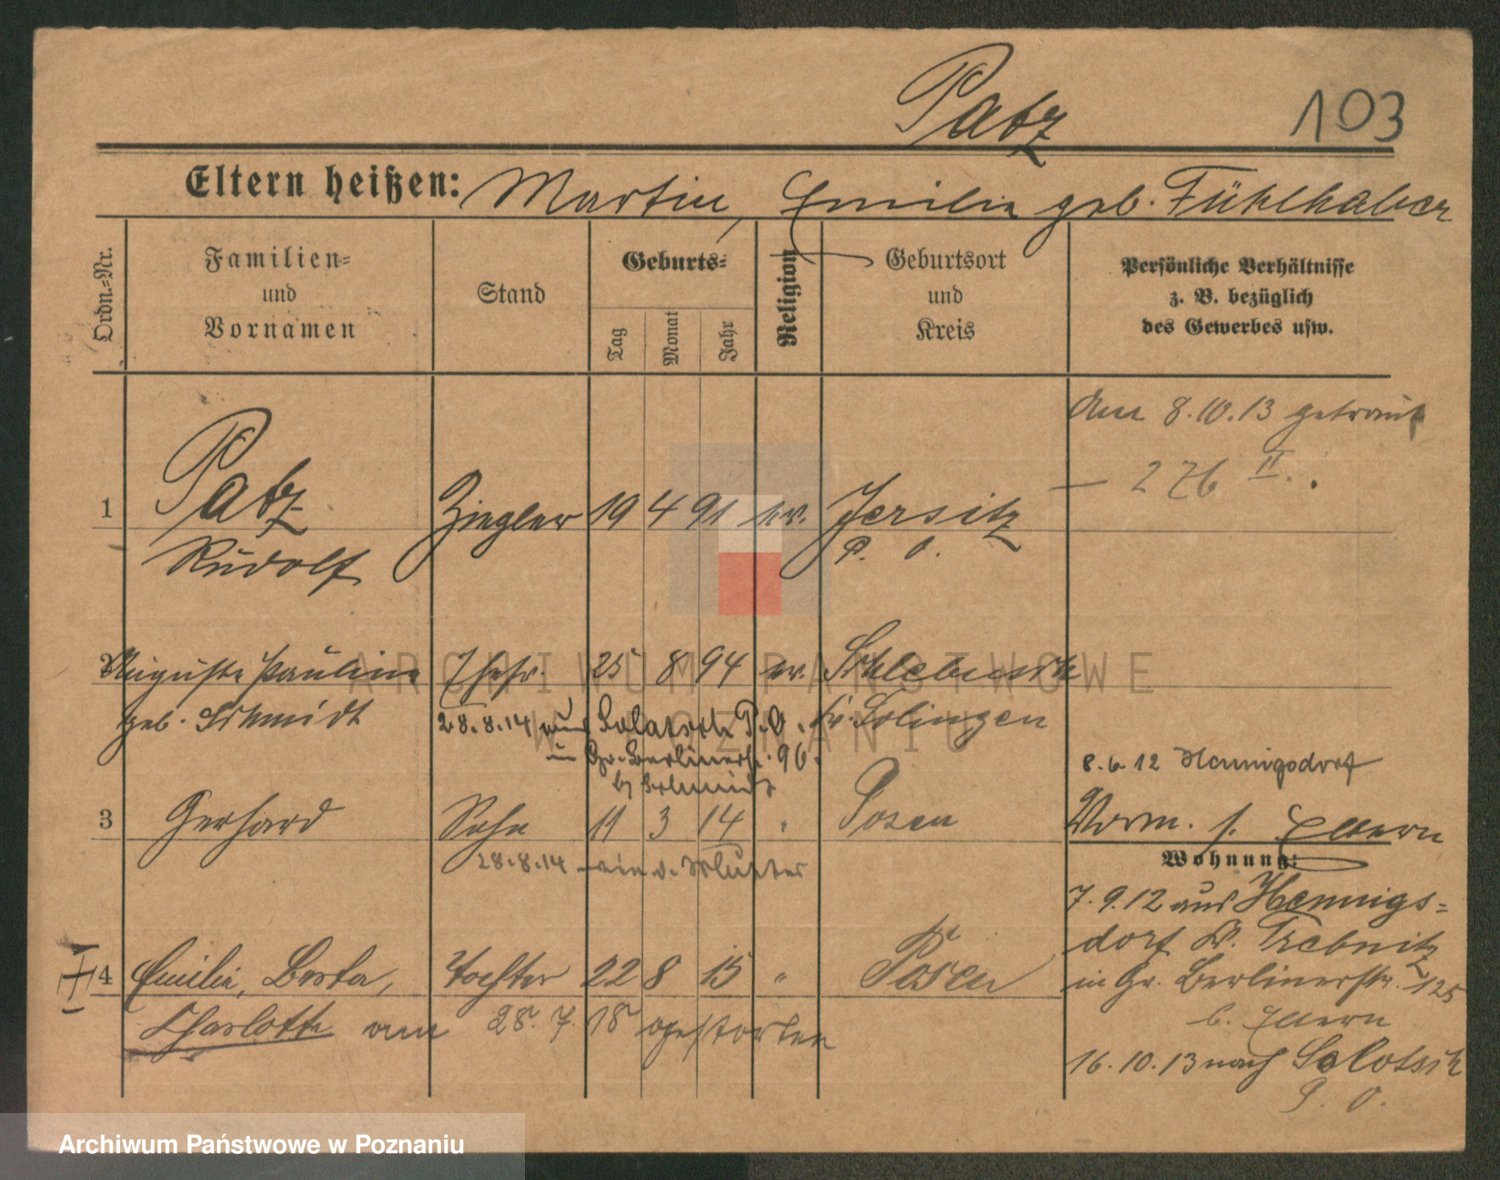 Patz
103
Eltern heißen: Martin, Emilie geb. Fühlhaber
Ordn.-Nr.
Familien- und Vornamen
Stand
Geburts-
Tag
Monat
Jahr
Religion
Geburtsort und Kreis
Persönliche Verhältnisse
z. B. bezüglich
des Gewerbes usw.
den 8.10.13 getraut
— 276 II.
1 Patz Ziegler 19 4 91 ev. Jersitz
Rudolf P. O.
2 Auguste Pauline Ehefr. 25 8 94 ev. Schlebusch
geb. Schmidt 28.8.14 aus Solatsch P.O. Kr. Solingen
in Gr. Berlinerstr. 96.
b/ Schmidt
8.6.12 Hennigsdorf
3 Gerhard Sohn 11 3 14 " Posen
Vorm. s. Eltern
28.8.14 wie d. Mutter
Wohnung:
7.9.12 aus Hennigs-
dorf Kr. Trebnitz
4 Emilie, Berta, Tochter 22 8 15 " Posen
in Gr. Berlinerstr. 125
Charlotte am 28.7.18 gestorben
b. Eltern
16.10.13 nach Solatsch
P. O.
ARCHIWUM PAŃSTWOWE
W POZNANIU
Archiwum Państwowe w Poznaniu